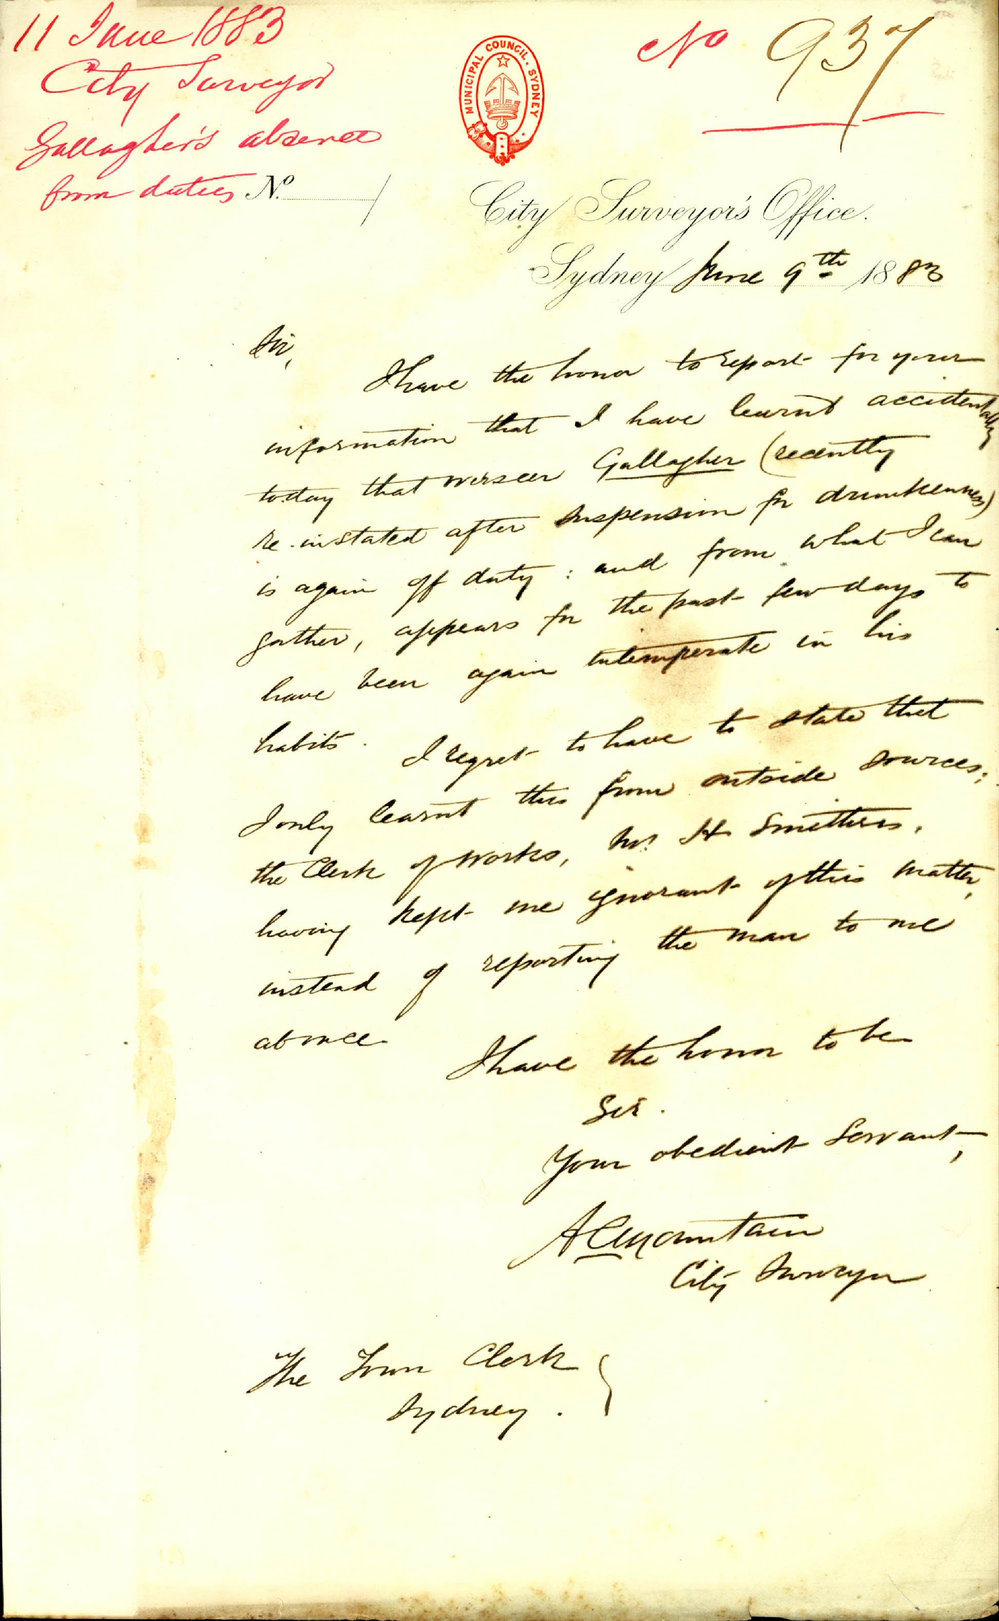 11 June 1883
City Surveyor
Gallagher's absence
from duties
No.
No 937
MUNICIPAL COUNCIL. SYDNEY
City Surveyor's Office.
Sydney June 9th 1883
Sir,
I have the honor to report for your
information that I have learnt accidentally
today that overseer Gallagher (recently
re-instated after suspension for drunkenness)
is again off duty : and from what I can
gather, appears for the past few days to
have been again intemperate in his
habits. I regret to have to state that
I only learnt this from outside sources;
the Clerk of Works, Mr. H Smithers,
having kept me ignorant of this matter,
instead of reporting the man to me
at once
I have the honor to be
Sir.
Your obedient Servant,
A C Mountain
City Surveyor
The Town Clerk
Sydney.